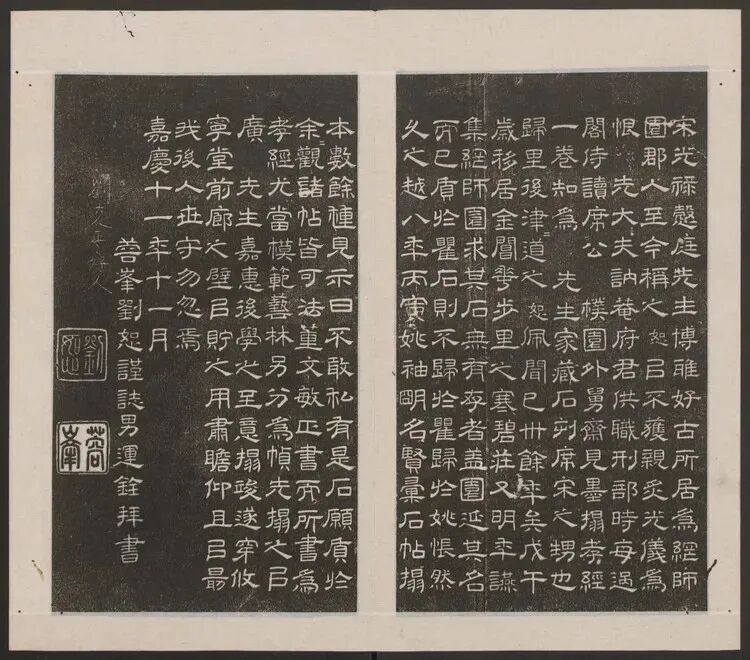 宋光祿愨庭先生博雅好古所居為經師
園郡人至今稱之恕㠯不獲親炙光儀為
恨 先大夫訥菴府君供職刑部時每過
閣侍讀席公 樸園外舅齋見墨搨孝經
一卷知為 先生家藏石刻席宋之甥也
歸里後津道之恕佩聞已卅餘年矣戊午
歲移居金閶花步里之寒碧莊又明年讌
集經師園求其石無有存者蓋園延其名
而已質於瞿石則不歸於瞿歸於姚悵然
久之越八年丙寅姚袖明名賢彙石帖搨
本數餘種見示曰不敢私有是石願質於
余觀諸帖皆可法董文敏正書而所書為
孝經尤當模範藝林另分為幀先搨之㠯
廣 先生嘉惠後學之至意搨竣遂穿攸
寧堂前廊之壁㠯貯之用肅瞻仰且㠯勗
我後人世守勿忽焉
嘉慶十一年十一月
蓉峯劉恕謹誌男運銓拜書
劉恕
蓉峯